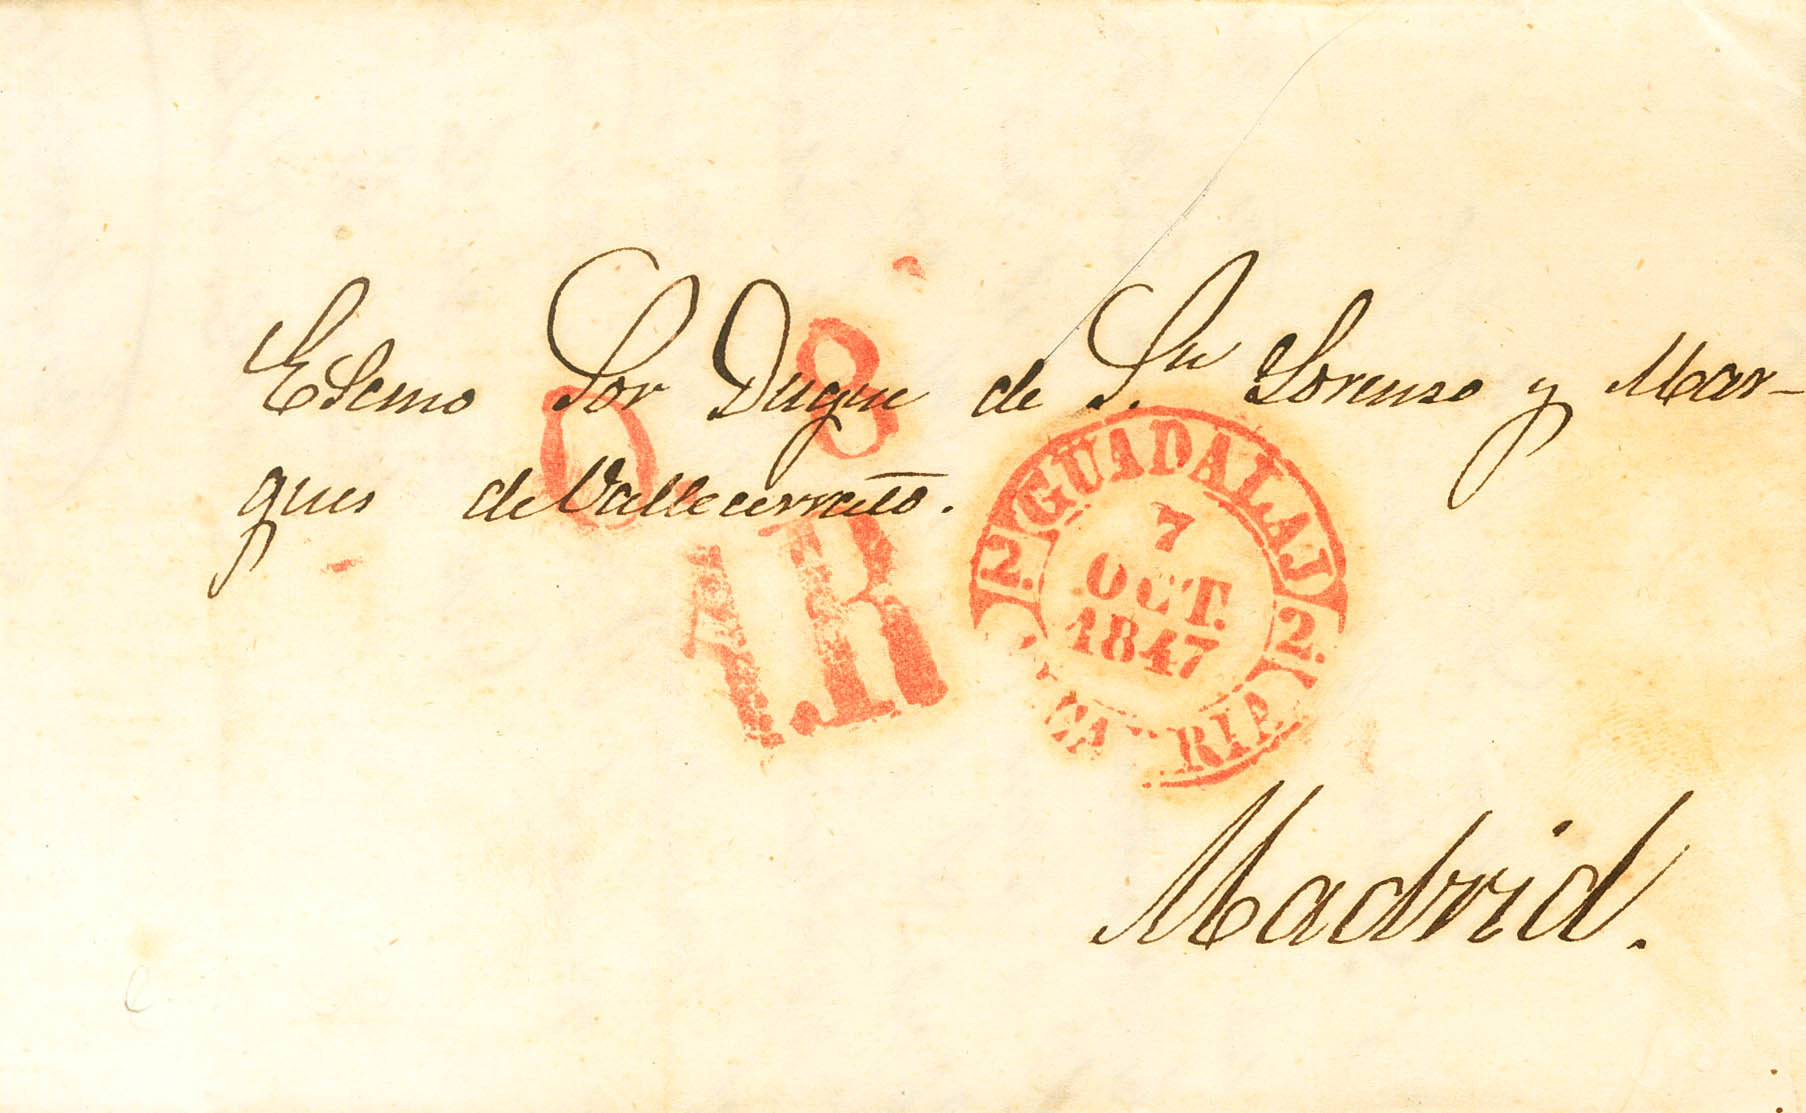 Escmo Sor Duque de Sn Lorenzo y Mar-
ques de Vallecerrato.
8
O
1.R
GUADALAJ
2. 2.
7
OCT.
1847
CA RIA
Madrid.